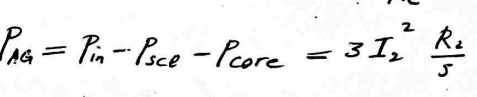 P_AG = P_in - P_sce - P_core = 3 I_2^2 R_2/s